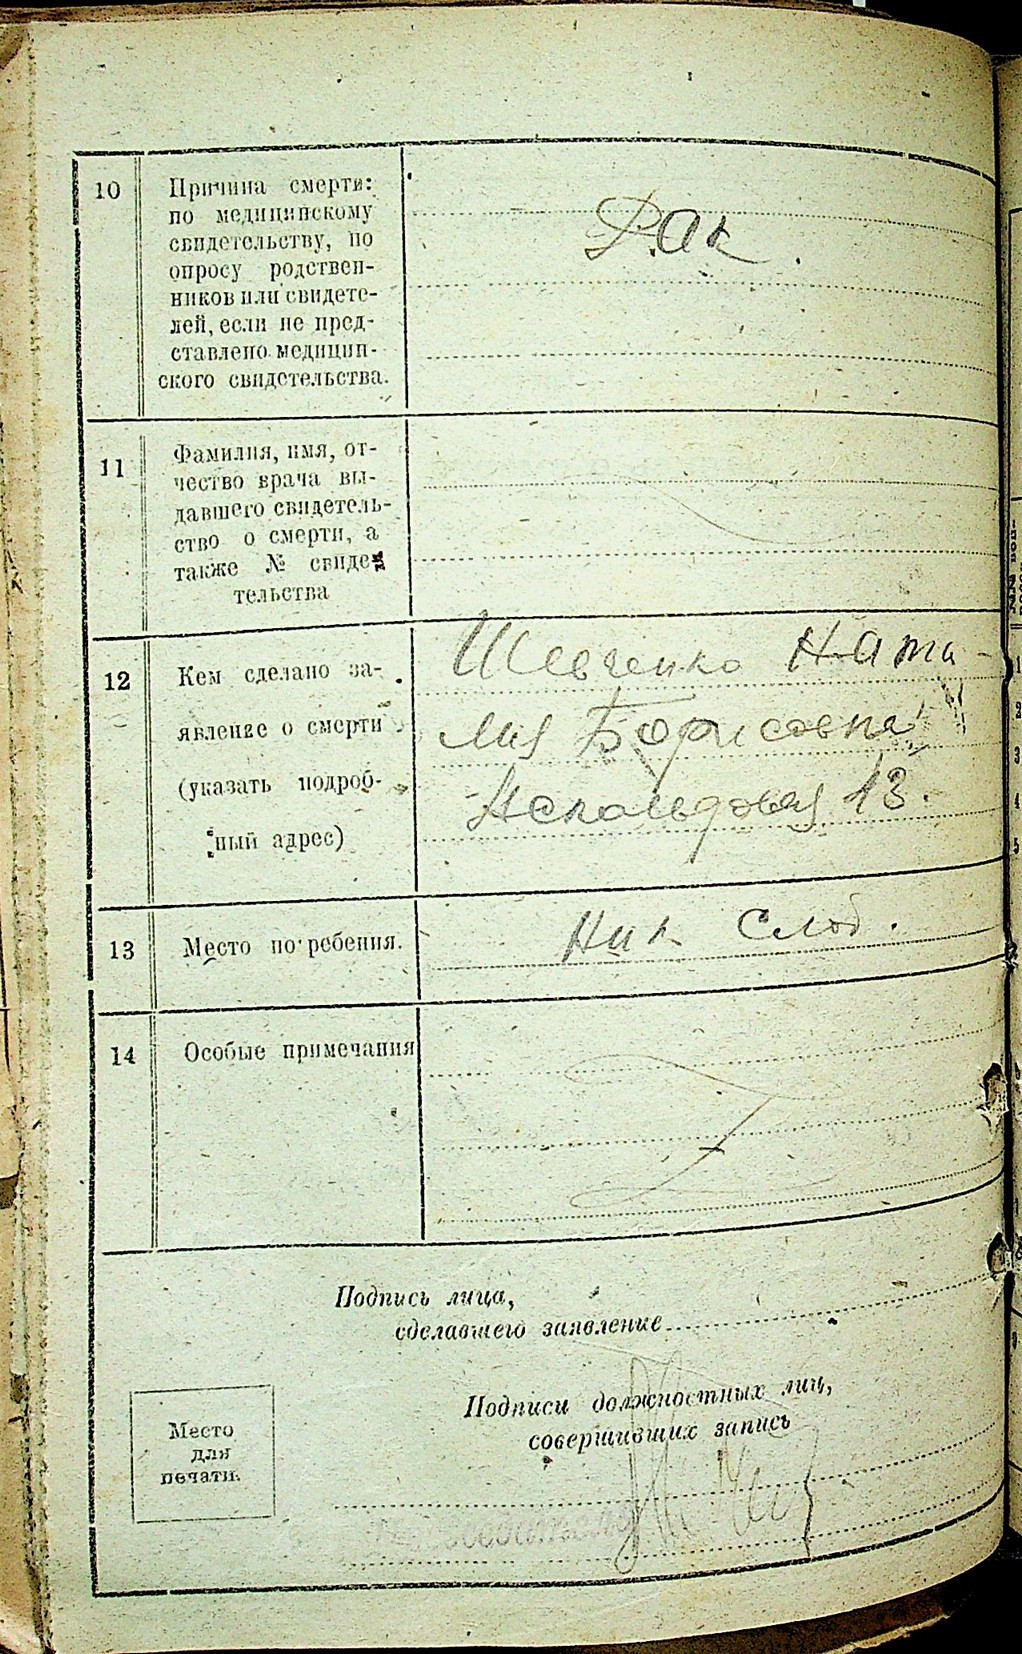 10
Причина смерти:
по медицинскому
свидетельству, по
опросу родствен-
ников или свидете-
лей, если не пред-
ставлено медицин-
ского свидетельства.
Рак.
11
Фамилия, имя, от-
чество врача вы-
давшего свидетель-
ство о смерти, а
также № свиде-
тельства
12
Кем сделано за-
явление о смерти
(указать подроб-
ный адрес)
Шевченко Ната-
лия Борисовна
Аскольдовая 13.
13
Место погребения.
Ник Слоб.
14
Особые примечания
Подпись лица,
сделавшего заявление
Подписи должностных лиц,
совершивших запись
Место
для
печати.